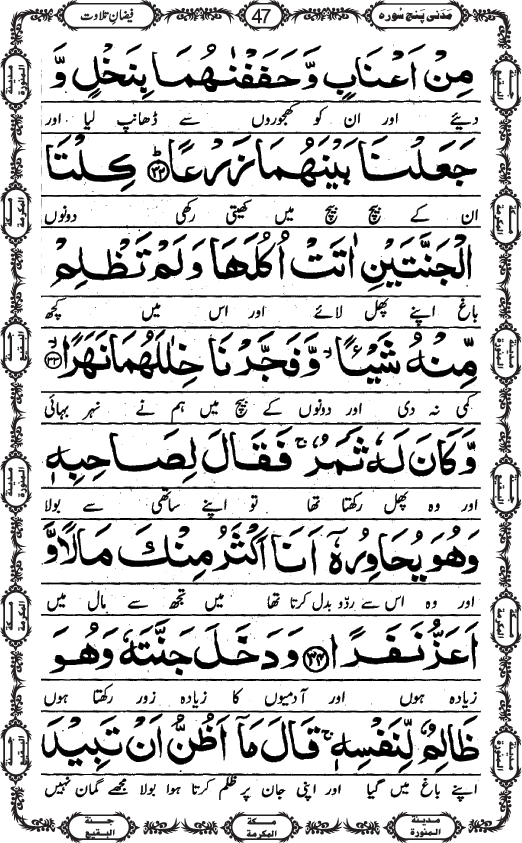 مَدَنی پنج سُورہ
47
فیضانِ تلاوت
مِنْ اَعْنَابٍ وَّ حَفَفْنٰهُمَا بِنَخْلٍ وَّ
دیئے اور ان کو کھجوروں سے ڈھانپ لیا اور
جَعَلْنَا بَیْنَهُمَا زَرْعًا ﴿۳۲﴾ كِلْتَا
ان کے بیچ بیچ میں کھیتی رکھی دونوں
الْجَنَّتَیْنِ اٰتَتْ اُكُلَهَا وَ لَمْ تَظْلِمْ
باغ اپنے پھل لائے اور اس میں کچھ
مِّنْهُ شَیْــٴًـا ۙ وَّ فَجَّرْنَا خِلٰلَهُمَا نَهَرًا ۙ﴿۳۳﴾
کمی نہ دی اور دونوں کے بیچ میں ہم نے نہر بہائی
وَّ كَانَ لَهٗ ثَمَرٌ ۚ فَقَالَ لِصَاحِبِهٖ
اور وہ پھل رکھتا تھا تو اپنے ساتھی سے بولا
وَ هُوَ یُحَاوِرُهٗۤ اَنَا اَكْثَرُ مِنْكَ مَالًا وَّ
اور وہ اس سے ردّو بدل کرتا تھا میں تجھ سے مال میں
اَعَزُّ نَفَرًا ﴿۳۴﴾ وَ دَخَلَ جَنَّتَهٗ وَ هُوَ
زیادہ ہوں اور آدمیوں کا زیادہ زور رکھتا ہوں
ظَالِمٌ لِّنَفْسِهٖ ۚ قَالَ مَاۤ اَظُنُّ اَنْ تَبِیْدَ
اپنے باغ میں گیا اور اپنی جان پر ظلم کرتا ہوا بولا مجھے گمان نہیں
مدینة المنورة
مكة المكرمة
جنة البقيع
مدينة المنورة
مكة المكرمة
جنة البقيع
جنة البقيع
مكة المكرمة
مدينة المنورة
جنة البقيع
مكة المكرمة
مدينة المنورة
جنة البقيع
مكة المكرمة
مدينة المنورة